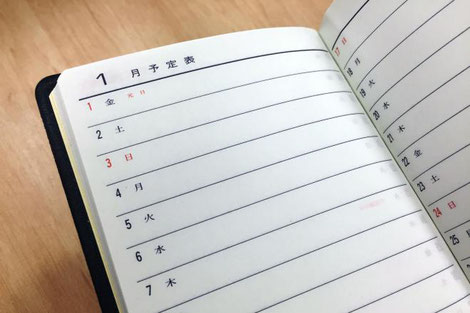 1 月予定表
1 金 元日
2 土
3 日
4 月
5 火
6 水
7 木
17 日
18 月
19 火
20 水
21 木
22 金
23 土
24 日
25